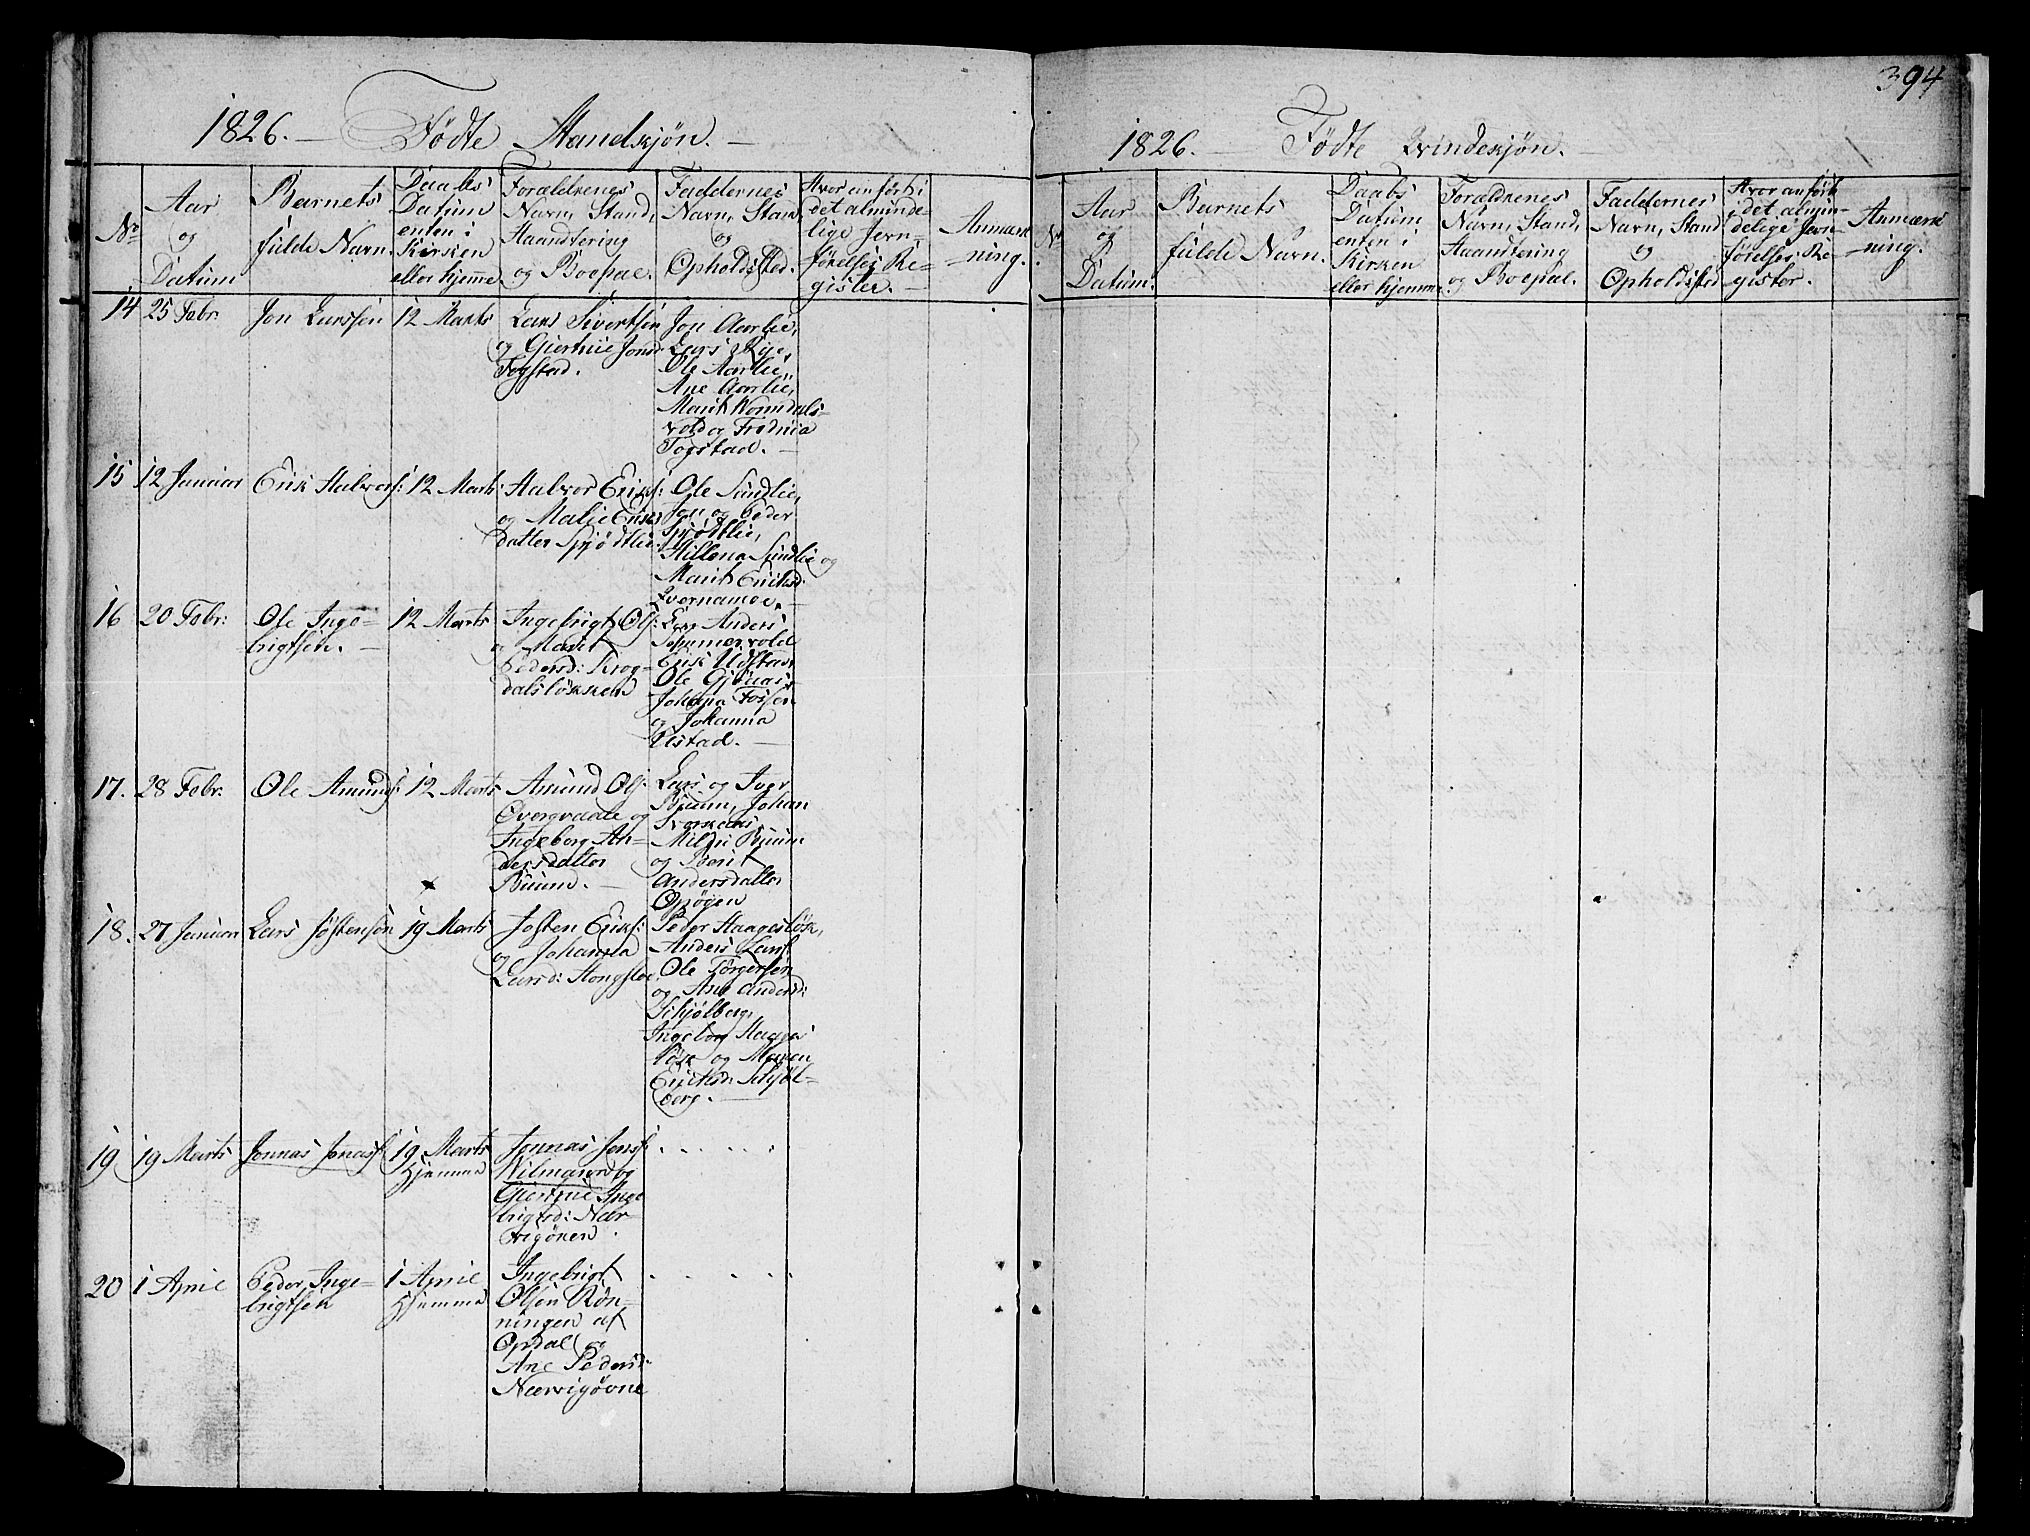 394
1826. — Fødte Mandkjøn. —
No
Aar
og
Datum
Barnets
fulde Navn.
Daabs
Datum
enten i
Kirken
eller hjemme
Forældrenes
Navn, Stand,
Haandtering
og Boepæl.
Faddernes
Navn, Stand
og
Opholdsted.
Hvor anført i
det alminde-
lige Jevn-
førelses Re-
gister. —
Anmærk
-ning.
14
25 Febr.
Jon Larssen
12 Marts
Lars Sivertsen
og Giertrue Jonsd:
Fogstad.
Jon Aarlie,
Lars Rye,
Ole Aarlie,
Ane Aarlie,
Marit
Fogstad. —
15
12 Januar
Erik Halvors:
12 Marts
Halvor Eriks:
og Malie Eriks
datter Spjødtlie
Ole Sundlie,
Jon og Peder
Spjødtlie,
Sundlie og
Marit Eriksd:
16
20 Febr:
Ole Inge-
brigtsen. —
12 Marts
Ingebrigt Ols:
og Marit
Pedersd: Krog-
dalsløkken
Anders
Erik Udstad,
Ole
Johanna Fossen
og Johanna
Ustad. —
17.
28 Febr.
Ole Amunds:
12 Marts
Amund Ols:
og
Ingeborg An-
dersdatter
Buum. —
Lars og Iver
Buum, Johan
Mildri Buum
og Berit
Andersdatter
18.
27 Januar
Lars Jøstensøn
19 Marts
Josten Eriks:
og Johanna
Larsd:
Peder
Anders
Ole Torgersen
og Ane Andersd:
Schjølberg,
Ingeborg Haages
løk og Maren
Eriksd: Schjøl-
berg. —
19
19 Marts
Jonnas Jonass:
19 Marts
hjemme
Jonnas Jonss:
Wilmann og
Giertrue Inge
brigtsd: Nær-
. . . . . .
20
1 April
Peder Inge-
brigtsen
1 April
hjemme
Ingebrigt
Olsøn Røn-
ningen af
Opdal og
Ane Pedersd:
. . . . . .
1826. — Fødte Qvindekjøn. —
No
Aar
og
Datum.
Barnets
fulde Navn.
Daabs
Datum
enten i
Kirken
eller hjemme
Forældrenes
Navn, Stand,
Haandtering
og Boepæl.
Faddernes
Navn, Stand
og
Opholdsted
Hvor anført
i det almin-
delige Jevn-
førelses Re-
gister.
Anmærk
-ning.